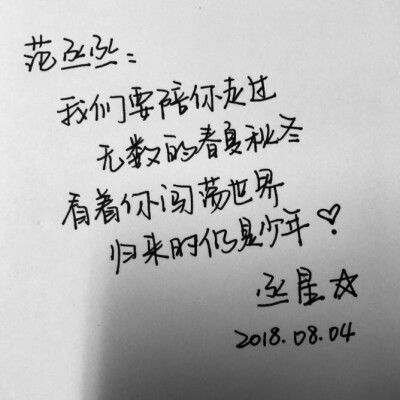 范丞丞:
我们要陪你走过
无数的春夏秋冬
看着你闯荡世界
归来时仍是少年♡
丞星☆
2018.08.04